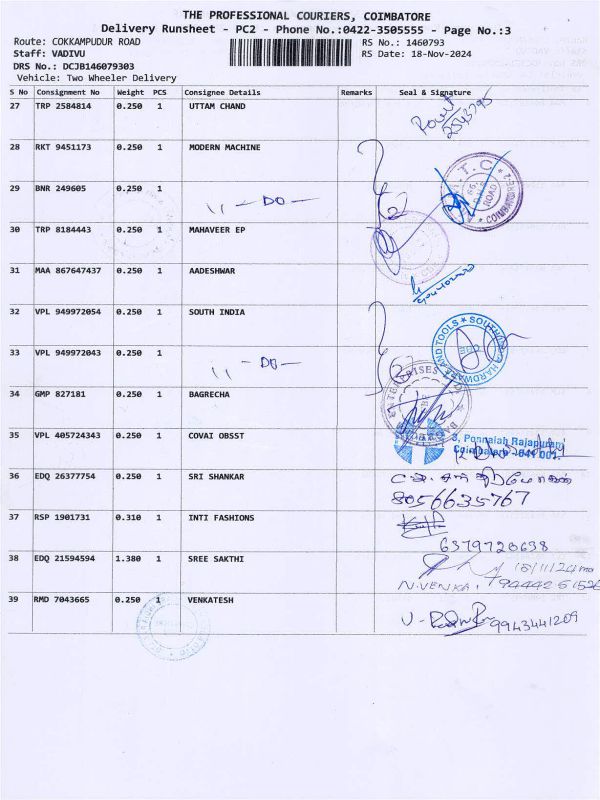 THE PROFESSIONAL COURIERS, COIMBATORE
Delivery Runsheet - PC2 - Phone No.:0422-3505555 - Page No.:3
Route: COKKAMPUDUR ROAD RS No.: 1460793
Staff: VADIVU RS Date: 18-Nov-2024
DRS No.: DCJB146079303
Vehicle: Two Wheeler Delivery
S No Consignment No Weight PCS Consignee Details Remarks Seal & Signature
27 TRP 2584814 0.250 1 UTTAM CHAND
28 RKT 9451173 0.250 1 MODERN MACHINE
29 BNR 249605 0.250 1 ,, — DO —
30 TRP 8184443 0.250 1 MAHAVEER EP
31 MAA 867647437 0.250 1 AADESHWAR
32 VPL 949972054 0.250 1 SOUTH INDIA
SOUTH HARDWARE AND TOOLS CBE
33 VPL 949972043 0.250 1 ,, — DO —
34 GMP 827181 0.250 1 BAGRECHA
ENTERPRISES
35 VPL 405724343 0.250 1 COVAI OBSST
3, Ponnaiah Rajapuram
Coimbatore - 641 001.
36 EDQ 26377754 0.250 1 SRI SHANKAR
8056635767
37 RSP 1901731 0.310 1 INTI FASHIONS
6379720638
38 EDQ 21594594 1.380 1 SREE SAKTHI 18/11/24
N.VENKA,
39 RMD 7043665 0.250 1 VENKATESH 9943441209